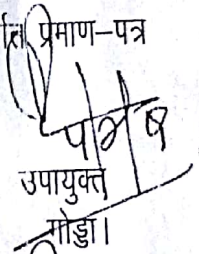 प्रमाण-पत्र
उपायुक्त
गोड्डा।